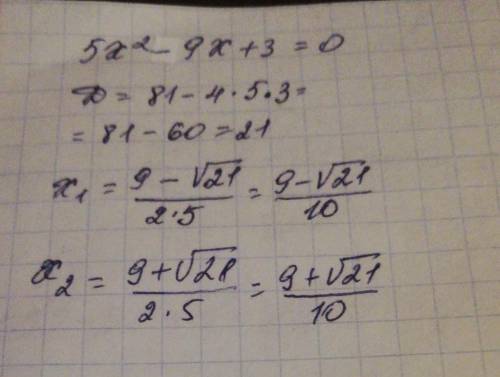 5x² - 9x + 3 = 0
D = 81 - 4 · 5 · 3 =
= 81 - 60 = 21
x₁ = (9 - √21)/(2·5) = (9 - √21)/10
x₂ = (9 + √21)/(2·5) = (9 + √21)/10